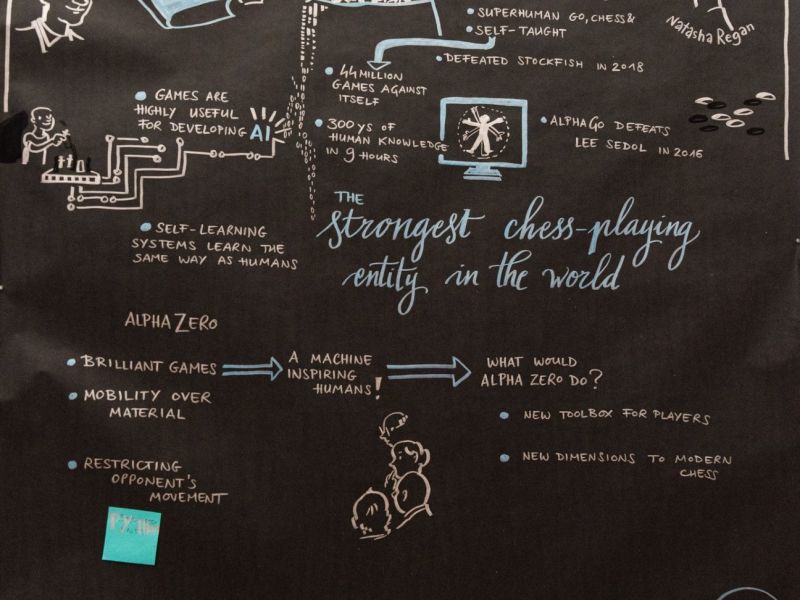 SUPERHUMAN GO, CHESS &
SELF-TAUGHT
Natasha Regan
DEFEATED STOCKFISH IN 2018
44 MILLION
GAMES AGAINST
ITSELF
GAMES ARE
HIGHLY USEFUL
FOR DEVELOPING AI
300 YS OF
HUMAN KNOWLEDGE
IN 9 HOURS
ALPHAGO DEFEATS
LEE SEDOL IN 2016
SELF-LEARNING
SYSTEMS LEARN THE
SAME WAY AS HUMANS
THE
strongest chess-playing
entity in the world
ALPHAZERO
BRILLIANT GAMES
MOBILITY OVER
MATERIAL
RESTRICTING
OPPONENT'S
MOVEMENT
A MACHINE
INSPIRING
HUMANS!
WHAT WOULD
ALPHA ZERO DO?
NEW TOOLBOX FOR PLAYERS
NEW DIMENSIONS TO MODERN
CHESS